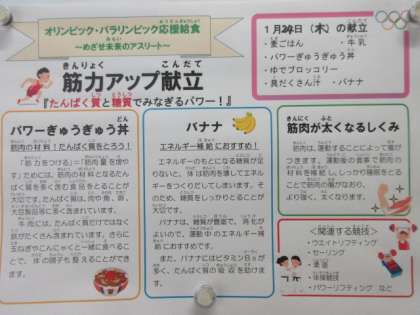 オリンピック・パラリンピック応援給食
～めざせ未来のアスリート～
筋力アップ献立
『たんぱく質と糖質でみなぎるパワー！』
（木）の献立
・麦ごはん ・牛乳
・パワーぎゅうぎゅう丼
・ゆでブロッコリー
・具だくさん汁 ・バナナ
パワーぎゅうぎゅう丼
筋肉の材料！たんぱく質をとろう！
「筋力をつける」＝「筋肉量を増や
す」ためには、筋肉の材料となるたん
ぱく質を多く含む食品をとることが
大切です。たんぱく質は、肉や魚、卵、
大豆製品等に多く含まれています。
牛肉には、たんぱく質だけではなく
鉄がたくさん含まれています。さらに
玉ねぎやこんにゃくと一緒に食べるこ
とで、体の調子も整えることができ
ます。
バナナ
エネルギー補給におすすめ！
エネルギーのもとになる糖質が足
りないと、体は筋肉を壊してエネルギ
ーをつくりだしてしまいます。そ
のため、糖質をしっかりとることが
大切です。
バナナは、糖質が豊富で、消化が
よいので、運動中のエネルギー補
給におすすめです。
また、バナナにはビタミンB₆が
多く、たんぱく質の吸収を助けま
す。
筋肉が太くなるしくみ
筋肉は、運動することによって傷が
つきます。運動後の食事で筋肉の
材料を補給し、しっかり睡眠をとる
ことで筋肉の傷がなおり、
より強く、太くなります。
＜関連する競技＞
・ウエイトリフティング
・セーリング
・柔道
・体操競技
・パワーリフティング など